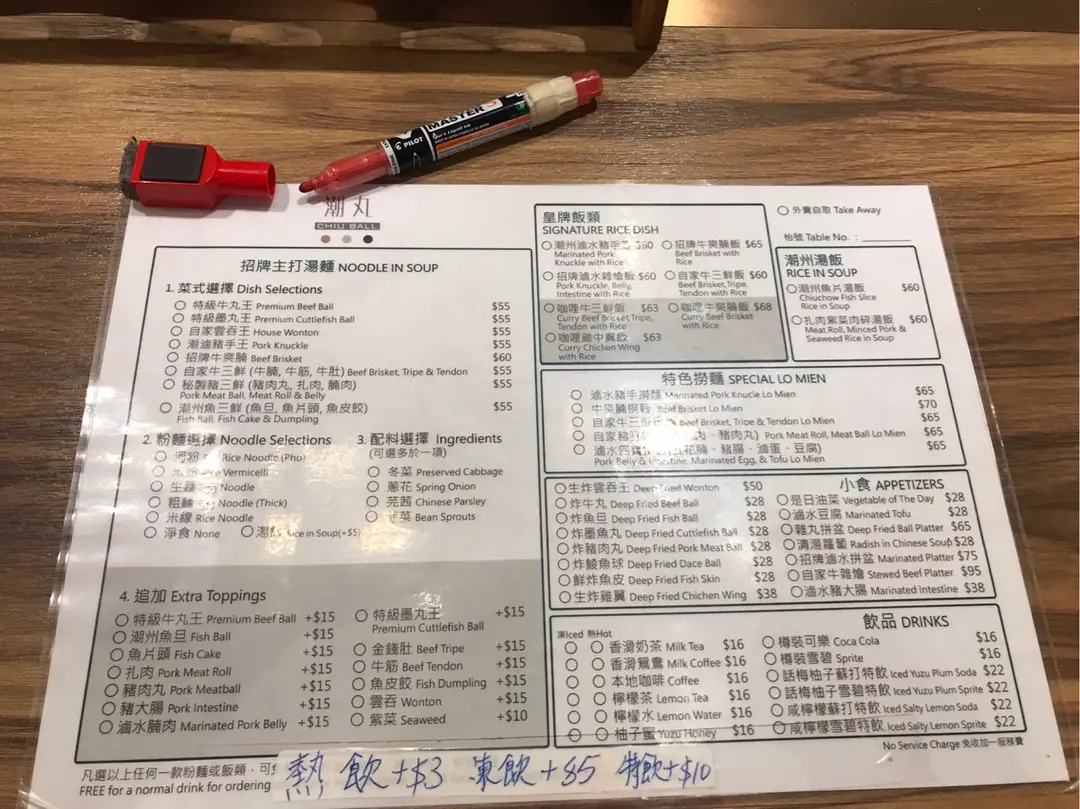 MASTER
PILOT
潮丸
CHIU BALL
招牌主打湯麵 NOODLE IN SOUP
1. 菜式選擇 Dish Selections
特級牛丸王 Premium Beef Ball $55
特級墨丸王 Premium Cuttlefish Ball $55
自家雲吞王 House Wonton $55
潮滷豬手王 Pork Knuckle $55
招牌牛爽腩 Beef Brisket $60
自家牛三鮮 (牛腩, 牛筋, 牛肚) Beef Brisket, Tripe & Tendon $55
秘製豬三鮮 (豬肉丸, 扎肉, 腩肉) $55
Pork Meat Ball, Meat Roll & Belly
潮州魚三鮮 (魚旦, 魚片頭, 魚皮餃) $55
Fish Ball, Fish Cake & Dumpling
2. 粉麵選擇 Noodle Selections
河粉 Rice Noodle (Pho)
米粉 Vermicelli
生麵 Noodle
粗麵 Noodle (Thick)
米線 Rice Noodle
淨食 None
Rice in Soup(+$5)
3. 配料選擇 Ingredients
(可選多於一項)
冬菜 Preserved Cabbage
蔥花 Spring Onion
芫茜 Chinese Parsley
芽菜 Bean Sprouts
4. 追加 Extra Toppings
特級牛丸王 Premium Beef Ball +$15
潮州魚旦 Fish Ball +$15
魚片頭 Fish Cake +$15
扎肉 Pork Meat Roll +$15
豬肉丸 Pork Meatball +$15
豬大腸 Pork Intestine +$15
滷水腩肉 Marinated Pork Belly +$15
特級墨丸王 +$15
Premium Cuttlefish Ball
金錢肚 Beef Tripe +$15
牛筋 Beef Tendon +$15
魚皮餃 Fish Dumpling +$15
雲吞 Wonton +$15
紫菜 Seaweed +$10
凡選以上任何一款粉麵或飯類, 可
FREE for a normal drink for ordering
熱飲+$3 凍飲+$5 特飲+$10
皇牌飯類
SIGNATURE RICE DISH
潮州滷水豬手 $60
Marinated Pork
Knuckle with Rice
招牌牛爽腩飯 $65
Beef Brisket with
Rice
招牌滷水雜燴飯 $60
Pork Knuckle, Belly,
Intestine with Rice
自家牛三鮮飯 $60
Beef Brisket,Tripe,
Tendon with Rice
咖哩牛三鮮飯 $63
Curry Beef Brisket,Tripe,
Tendon with Rice
咖哩牛爽腩飯 $68
Curry Beef Brisket
with Rice
咖哩雞中翼飯 $63
Curry Chicken Wing
with Rice
外賣自取 Take Away
枱號 Table No. :
潮州湯飯
RICE IN SOUP
潮州魚片湯飯 $60
Chiuchow Fish Slice
Rice in Soup
扎肉紫菜肉碎湯飯 $60
Meat Roll, Minced Pork &
Seaweed Rice in Soup
特色撈麵 SPECIAL LO MIEN
滷水豬手撈麵 Marinated Pork Knucle Lo Mien $65
牛爽腩撈麵 Beef Brisket Lo Mien $70
自家牛三 Beef Brisket, Tripe & Tendon Lo Mien $65
自家豬 、豬肉丸) Pork Meat Roll, Meat Ball Lo Mien $65
滷水四寶 腩、豬腸、滷蛋、豆腐) $65
Pork Belly & Intestine, Marinated Egg, & Tofu Lo Mien
小食 APPETIZERS
生炸雲吞王 Deep Fried Wonton $50
炸牛丸 Deep Fried Beef Ball $28
炸魚旦 Deep Fried Fish Ball $28
炸墨魚丸 Deep Fried Cuttlefish Ball $28
炸豬肉丸 Deep Fried Pork Meat Ball $28
炸鯪魚球 Deep Fried Dace Ball $28
鮮炸魚皮 Deep Fried Fish Skin $28
生炸雞翼 Deep Fried Chichen Wing $38
是日油菜 Vegetable of The Day $28
滷水豆腐 Marinated Tofu $28
雜丸拼盆 Deep Fried Ball Platter $65
清湯蘿蔔 Radish in Chinese Soup $28
招牌滷水拼盆 Marinated Platter $75
自家牛雜燴 Stewed Beef Platter $95
滷水豬大腸 Marinated Intestine $38
飲品 DRINKS
凍Iced 熱Hot
香滑奶茶 Milk Tea $16
香滑鴛鴦 Milk Coffee $16
本地咖啡 Coffee $16
檸檬茶 Lemon Tea $16
檸檬水 Lemon Water $16
柚子蜜 Yuzu Honey $16
樽裝可樂 Coca Cola $16
樽裝雪碧 Sprite $16
話梅柚子蘇打特飲 Iced Yuzu Plum Soda $22
話梅柚子雪碧特飲 Iced Yuzu Plum Sprite $22
咸檸檬蘇打特飲 Iced Salty Lemon Soda $22
咸檸檬雪碧特飲 Iced Salty Lemon Sprite $22
No Service Charge 免收加一服務費